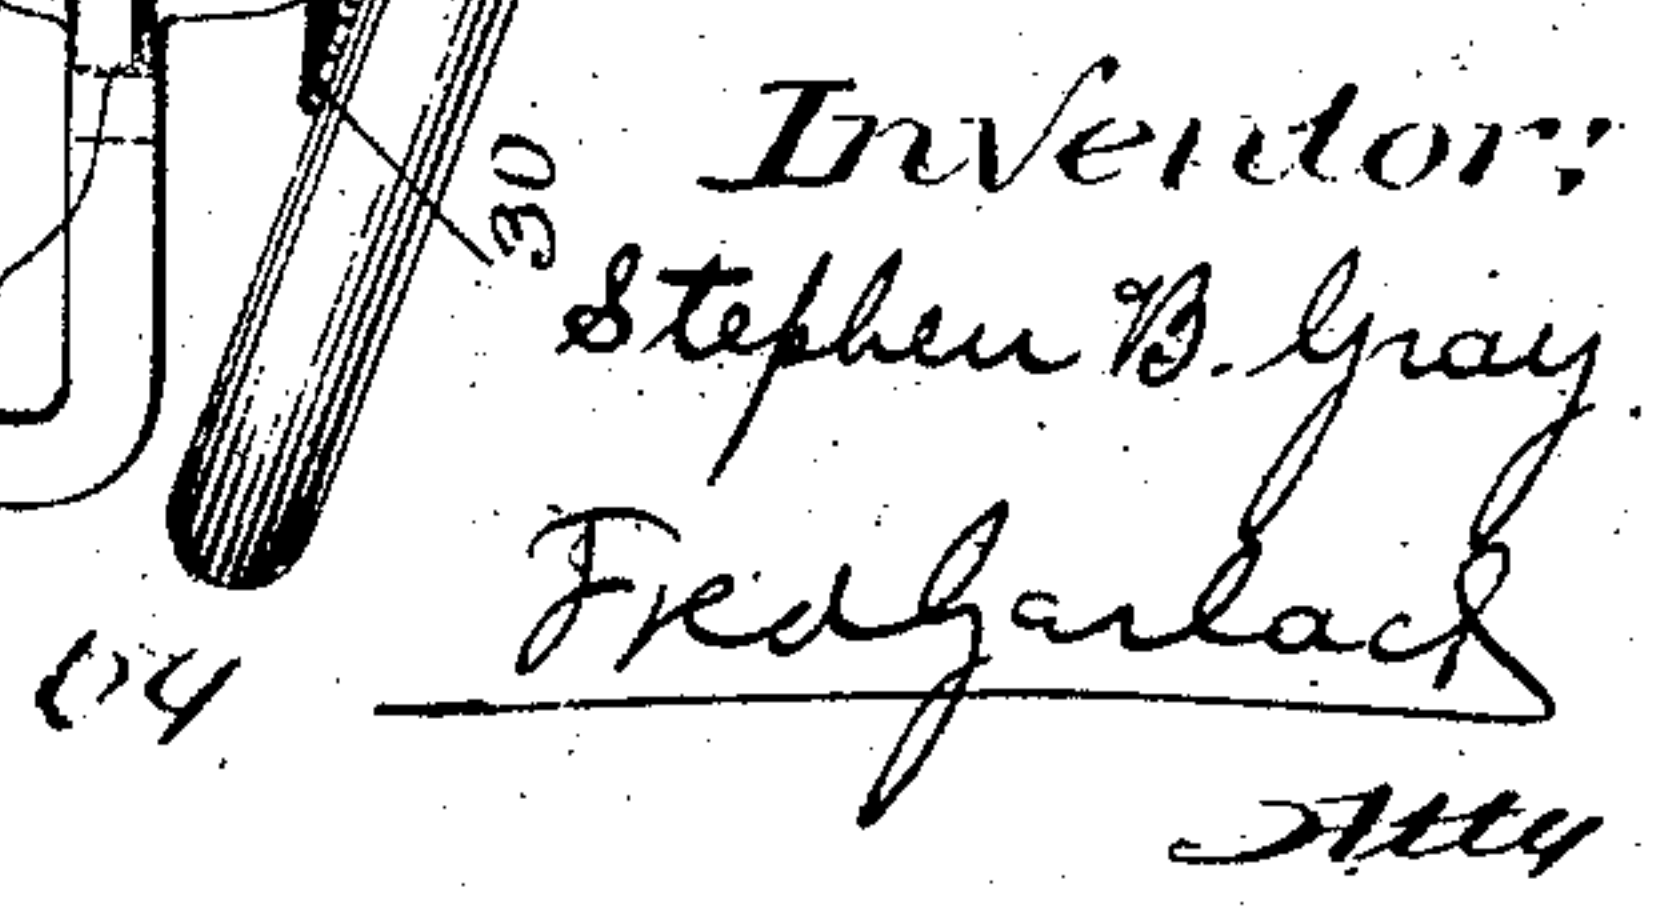 30
Inventor:
Stephen B. Gray.
By
Fred Gerlach
Atty